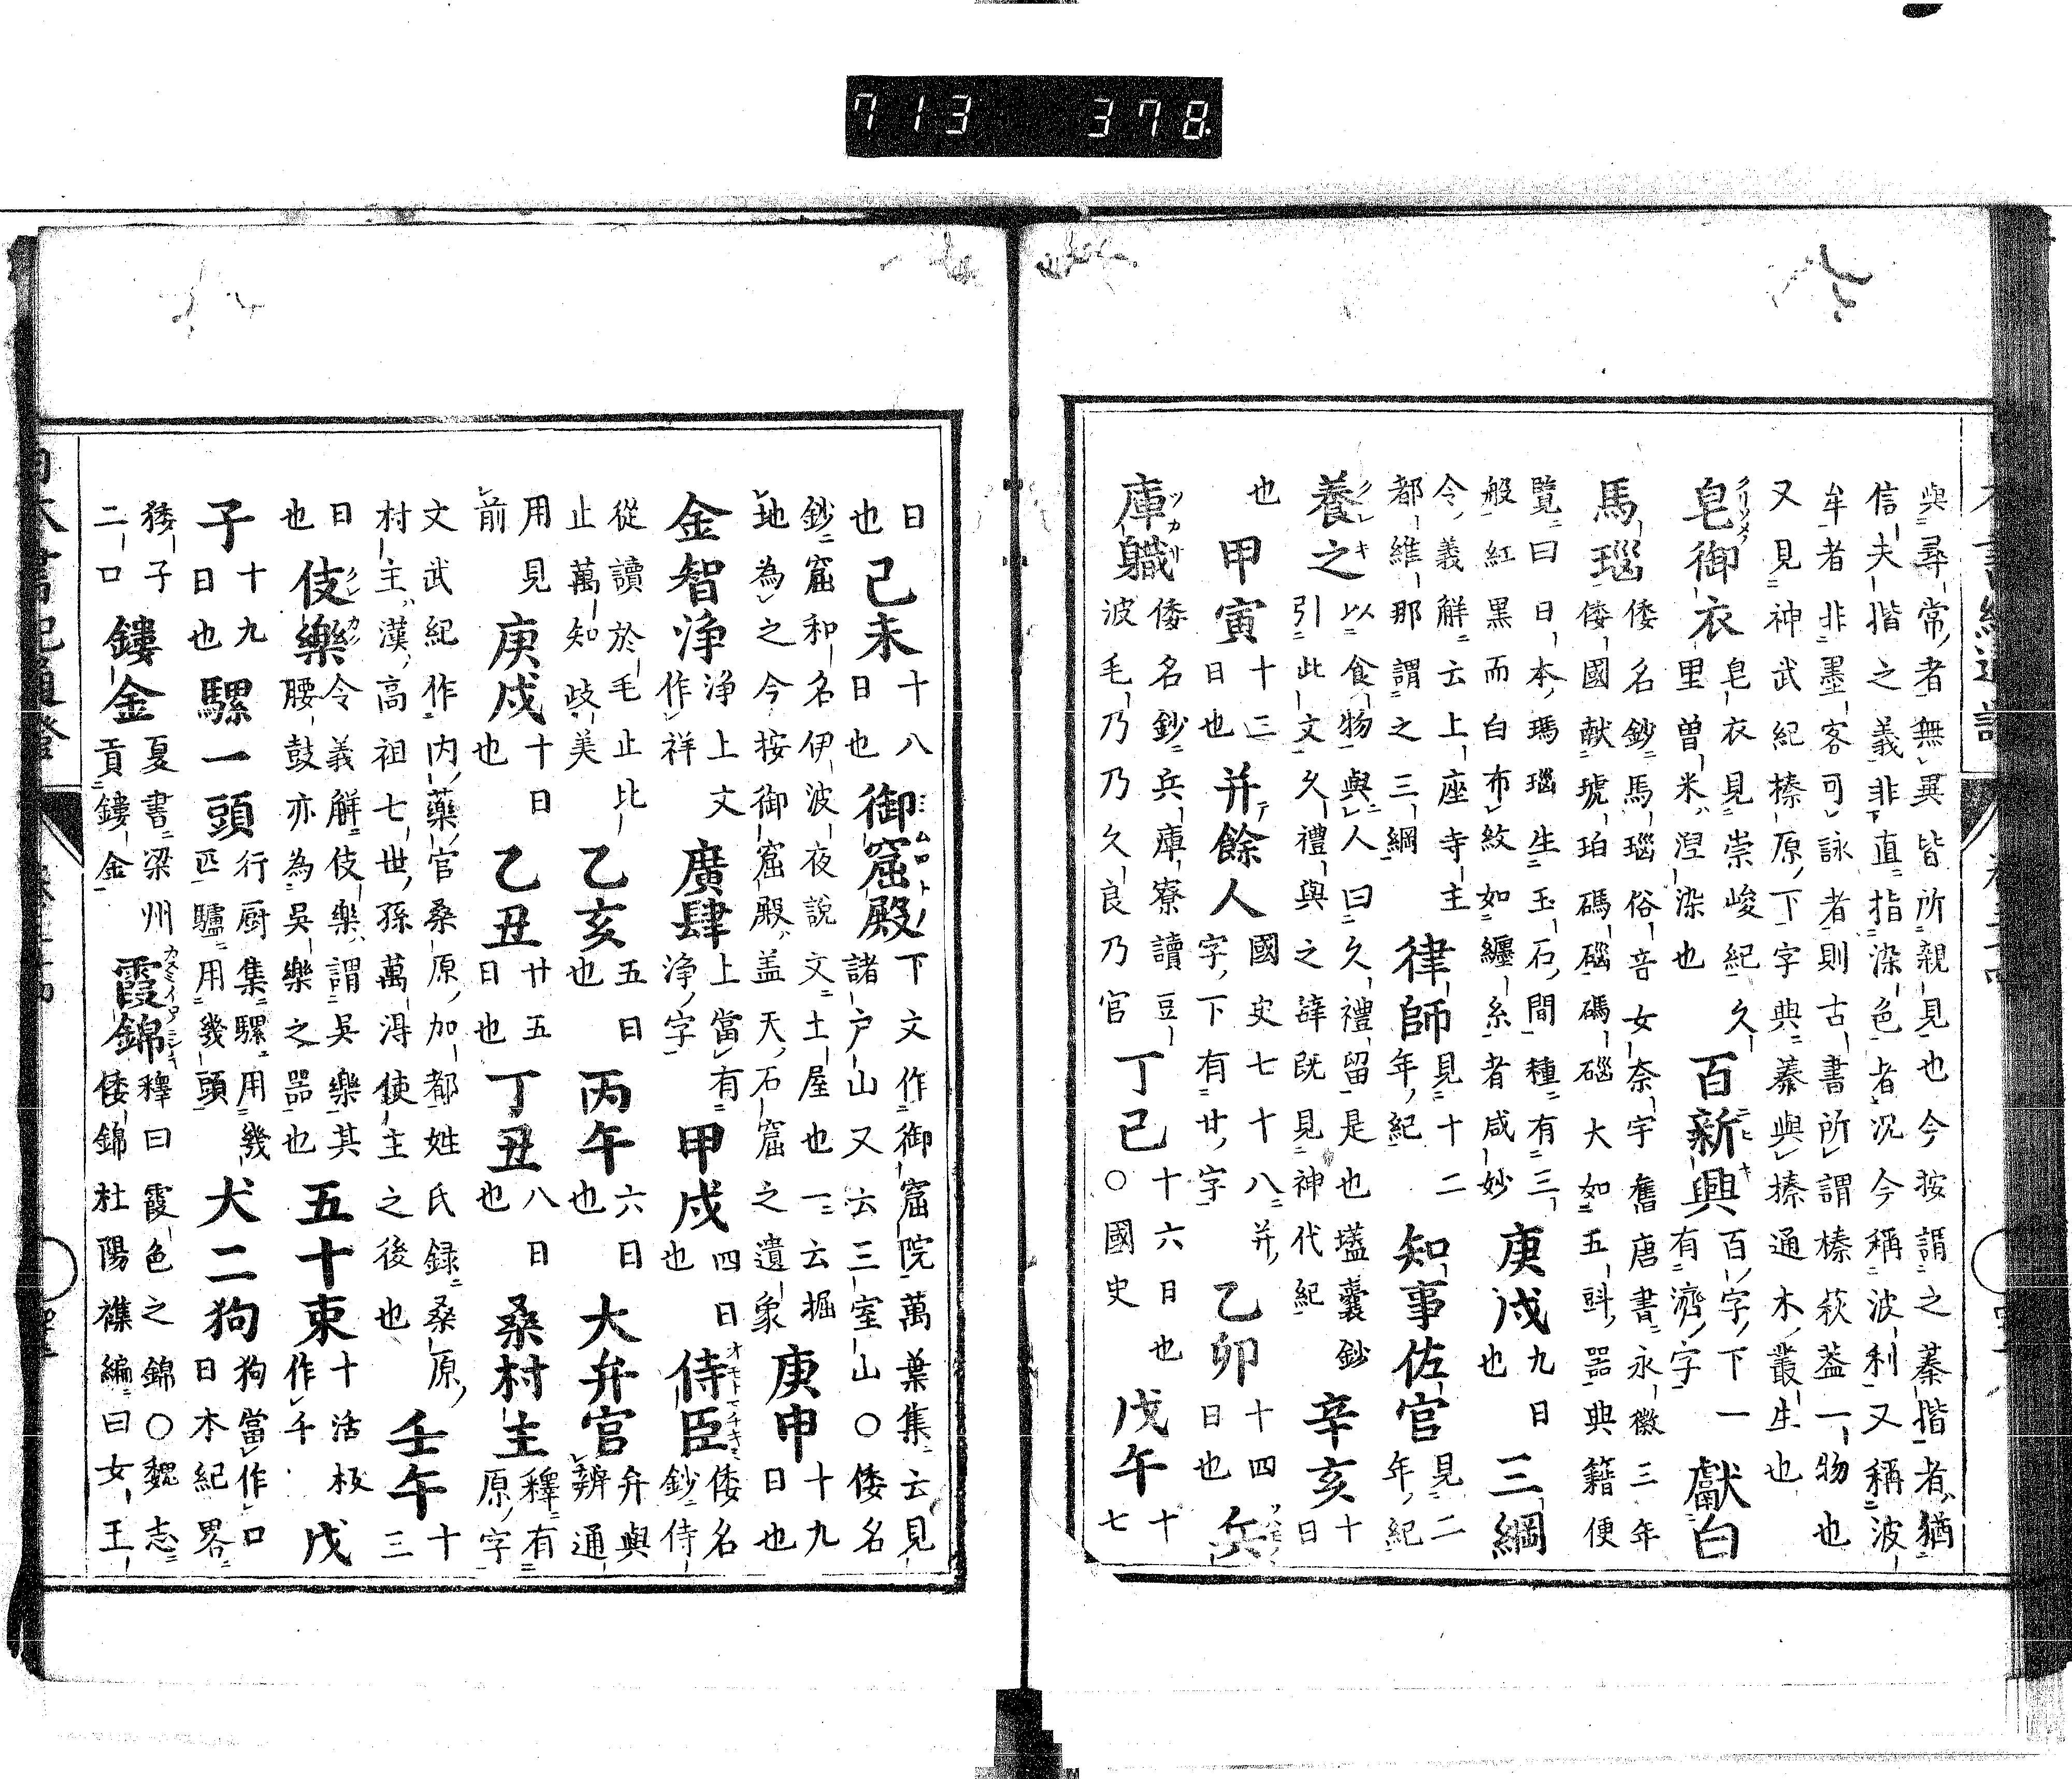 713 378
與尋常者無異皆所親見也今按謂之蓁揩者猶
信夫揩之義非直指染色者况今稱波利又稱波
牟者非墨客可詠者則古書所謂榛萩葢一物也
又見神武紀榛原下字典蓁與榛通木叢生也
皂御衣 皂衣見崇峻紀久
里曽米涅染也 百新興 百字下一
有濟字 獻白
馬瑙 倭名鈔馬瑙俗音女奈宇舊唐書永徽三年
倭國献琥珀碼碯碼碯大如五斗器典籍便
覧曰日本瑪瑙生玉石間種有三
般紅黒而白布紋如纏糸者咸妙 庚戌 九日
也 三綱
令義解云上座寺主
都維那謂之三綱 律師 見十二
年紀 知事佐官 見二
年紀
養之 以食物與人曰久禮留是也壒囊鈔
引此文久禮與之辞既見神代紀 辛亥 十
日
也 甲寅 十三
日也 并餘人 國史七十八并
字下有廿字 乙卯 十四
日也 兵
庫職 倭名鈔兵庫寮讀豆
波毛乃乃久良乃官 丁巳 十六日也
○國史 戊午 十
七
日
也 己未 十八
日也 御窟殿 下文作御窟院萬葉集云見
諸户山又云三室山○倭名
鈔窟和名伊波夜説文土屋也一云掘
地為之今按御窟殿盖天石窟之遺象 庚申 十九
日也
金智淨 浄上文
作祥 廣肆 上當有
浄字 甲戌 四日
也 侍臣 倭名
鈔侍
從讀於毛止比
止萬知歧美 乙亥 五日
也 丙午 六日
也 大弁官 弁與
辨通
用見
前 庚戌 十日
也 乙丑 廿五
日也 丁丑 八日
也 桑村主 釋有
原字
文武紀作内藥官桑原加都姓氏録桑原
村主漢高祖七世孫萬淂使主之後也 壬午 十
三
日
也 伎樂 令義解伎樂謂吳樂其
腰鼓亦為吳樂之器也 五十束 十活板
作千 戊
子 十九
日也 騾一頭 行厨集騾用幾
匹驢用幾頭 犬二狗 狗當作口
日本紀畧
矮子
二口 鏤金 夏書梁州
貢鏤金 霞錦 釋曰霞色之錦○魏志
倭錦杜陽襍編曰女王